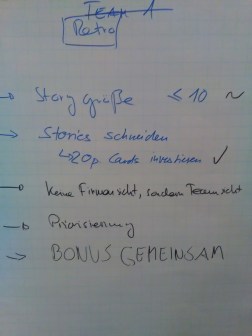 Team A
Retro
→ Story Größe ≤ 10 ~
→ Stories schneiden
↳ 20p. Cards investieren ✓
→ Keine Firmensicht, sondern Teamsicht
→ Priorisierung
→ BONUS GEMEINSAM